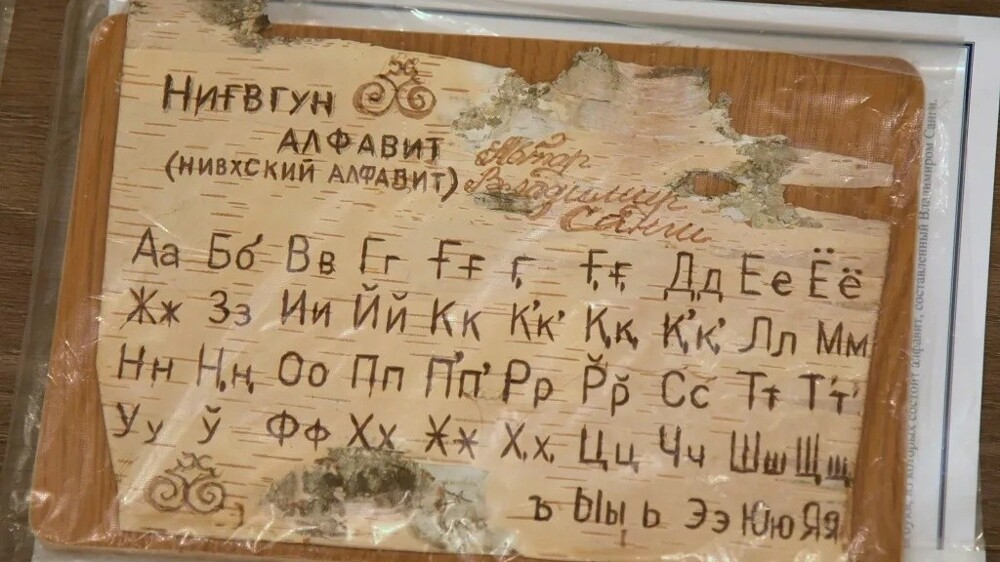 Ниғвгун
АЛФАВИТ
(НИВХСКИЙ АЛФАВИТ)
Автор
Владимир
Санги
Аа Бб Вв Гг Ғғ ӷ Ӻӻ Дд Ее Ёё
Жж Зз Ии Йй Кк К’к’ Ққ Қ’қ’ Лл Мм
Нн Ңң Оо Пп П’п’ Рр Р̆р̆ Сс Тт Т’т’
Уу ў Фф Хх Ӿӿ Ҳҳ Цц Чч Шш Щщ
ъ Ыы ь Ээ Юю Яя
из которых состоит алфавит, составленный Владимиром Санги.